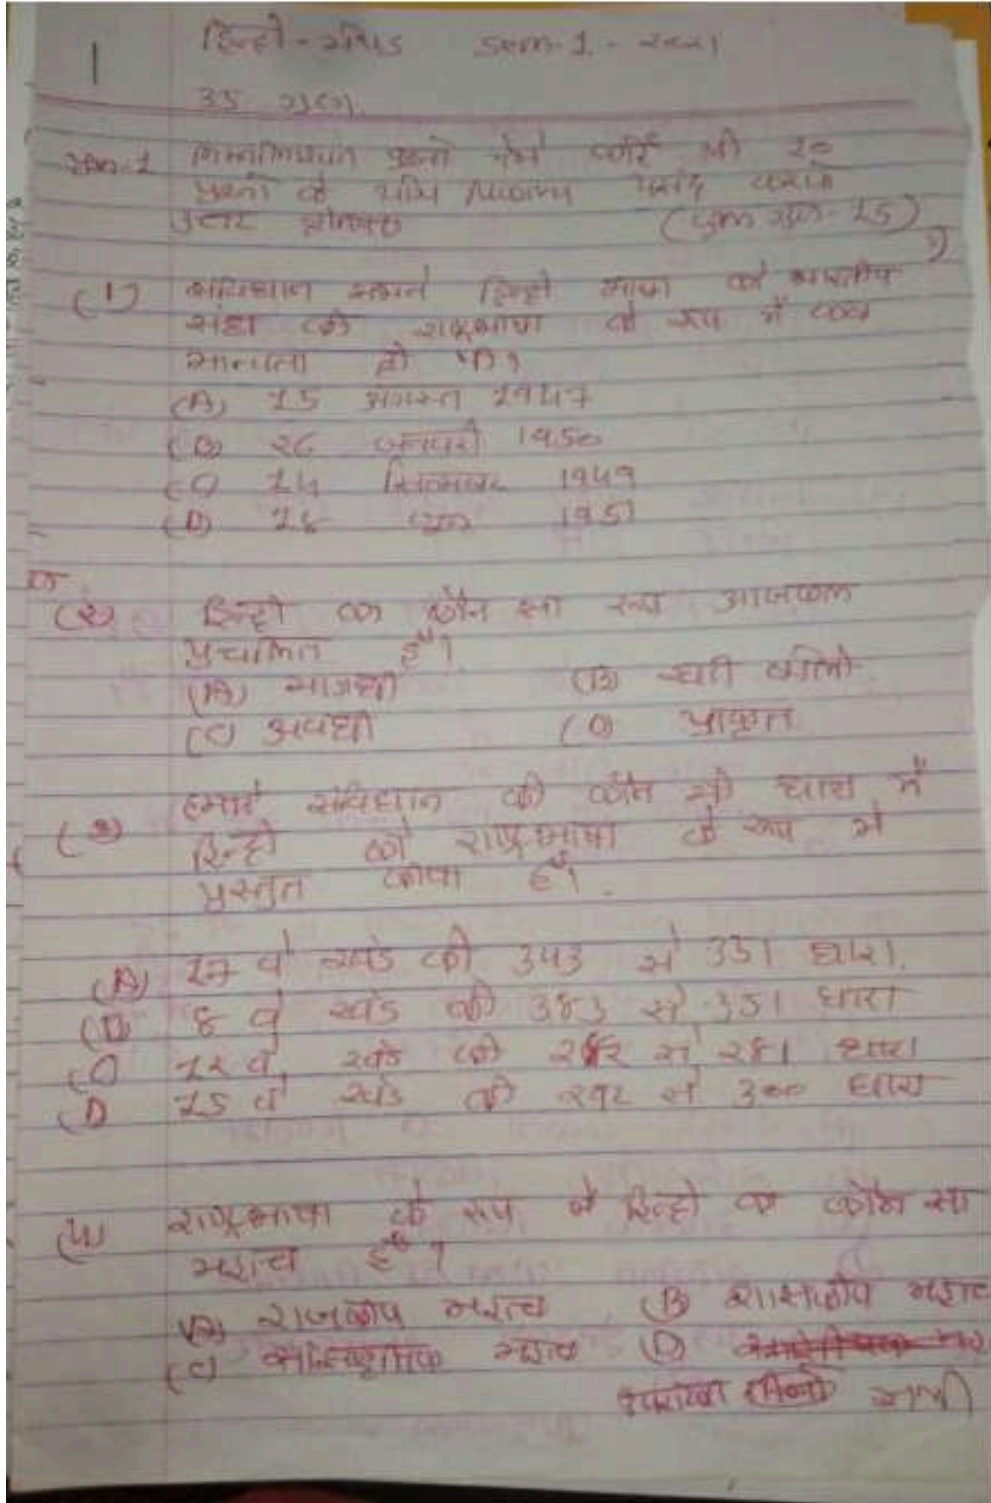 1
हिन्दी - sem-1 -
35 गुण.
निम्नलिखित प्रश्नो में से कोई भी २०
प्रश्नों के योग्य विकल्प पसंद करके
उत्तर (कुल गुण- 25)
(1) संविधान सभाने हिन्दी भाषा को भारतीय
संघ की राष्ट्रभाषा के रूप में कब
मान्यता दी थी?
(A) 15 अगस्त 1947
(B) २६ जनवरी 1950
(C) 14 सितम्बर 1949
(D) 1951
(२) हिन्दी का कौन सा रूप आजकल
प्रचलित है?
(A) (B) खड़ी बोली
(C) अवधी (D) प्राकृत
(३) हमारे संविधान की कौन सी धारा में
हिन्दी को राष्ट्रभाषा के रूप में
प्रस्तुत कीया है?
(A) 17 वे खंड की 343 से 351 धारा.
(B) 8 वे खंड की 383 से 351 धारा
(C) 12 वे खंड की से २४1 धारा
(D) 15 वे खंड की २९२ से 300 धारा
(4) राष्ट्रभाषा के रूप में हिन्दी का कौन सा
महत्व है?
(A) राजकीय महत्व (B) शासकीय महत्व
(C) महत्व (D)
सभी